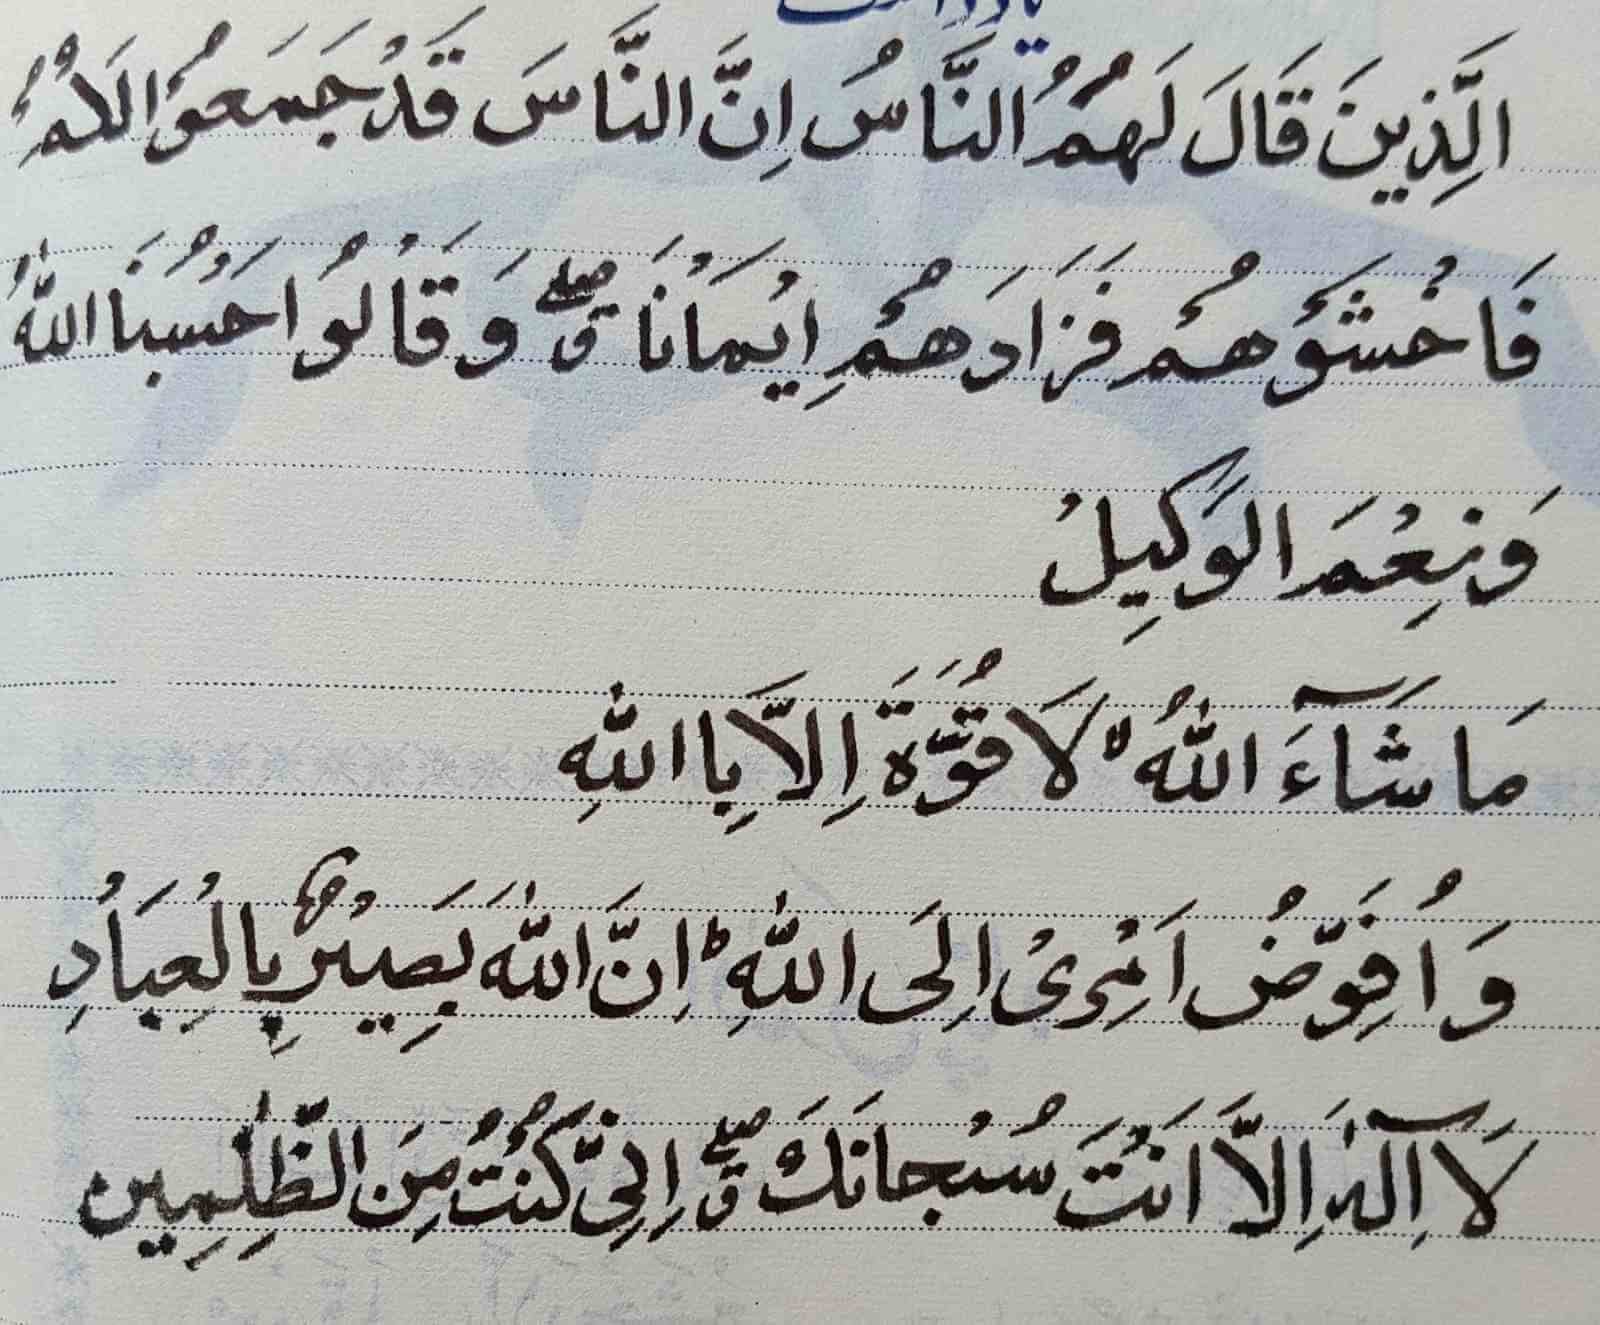 یادداشت
الَّذِينَ قَالَ لَهُمُ النَّاسُ اِنَّ النَّاسَ قَدْ جَمَعُوْا لَكُمْ
فَاخْشَوْهُمْ فَزَادَهُمْ اِيْمَانًا ۖق وَ قَالُوْا حَسْبُنَا اللّٰهُ
وَنِعْمَ الْوَكِيلُ
مَا شَآءَ اللّٰهُ ۙ لَا قُوَّةَ اِلَّا بِا اللّٰهِ
وَ اُفَوِّضُ اَمْرِىْ اِلَى اللّٰهِ ؕ اِنَّ اللّٰهَ بَصِيْرٌۢ بِالْعِبَادِ
لَآ اِلٰهَ اِلَّا اَنْتَ سُبْحانَكَ ۖق اِنِّىْ كُنْتُ مِنَ الظّٰلِمِين